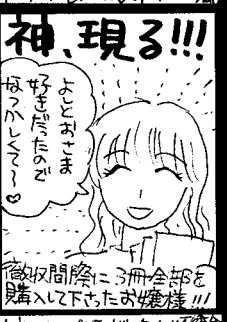 神、現る!!!
よしとおさま
好きだったので
なつかしくて〜♡
徹収間際に3冊全部を
購入して下さったお嬢様!!!